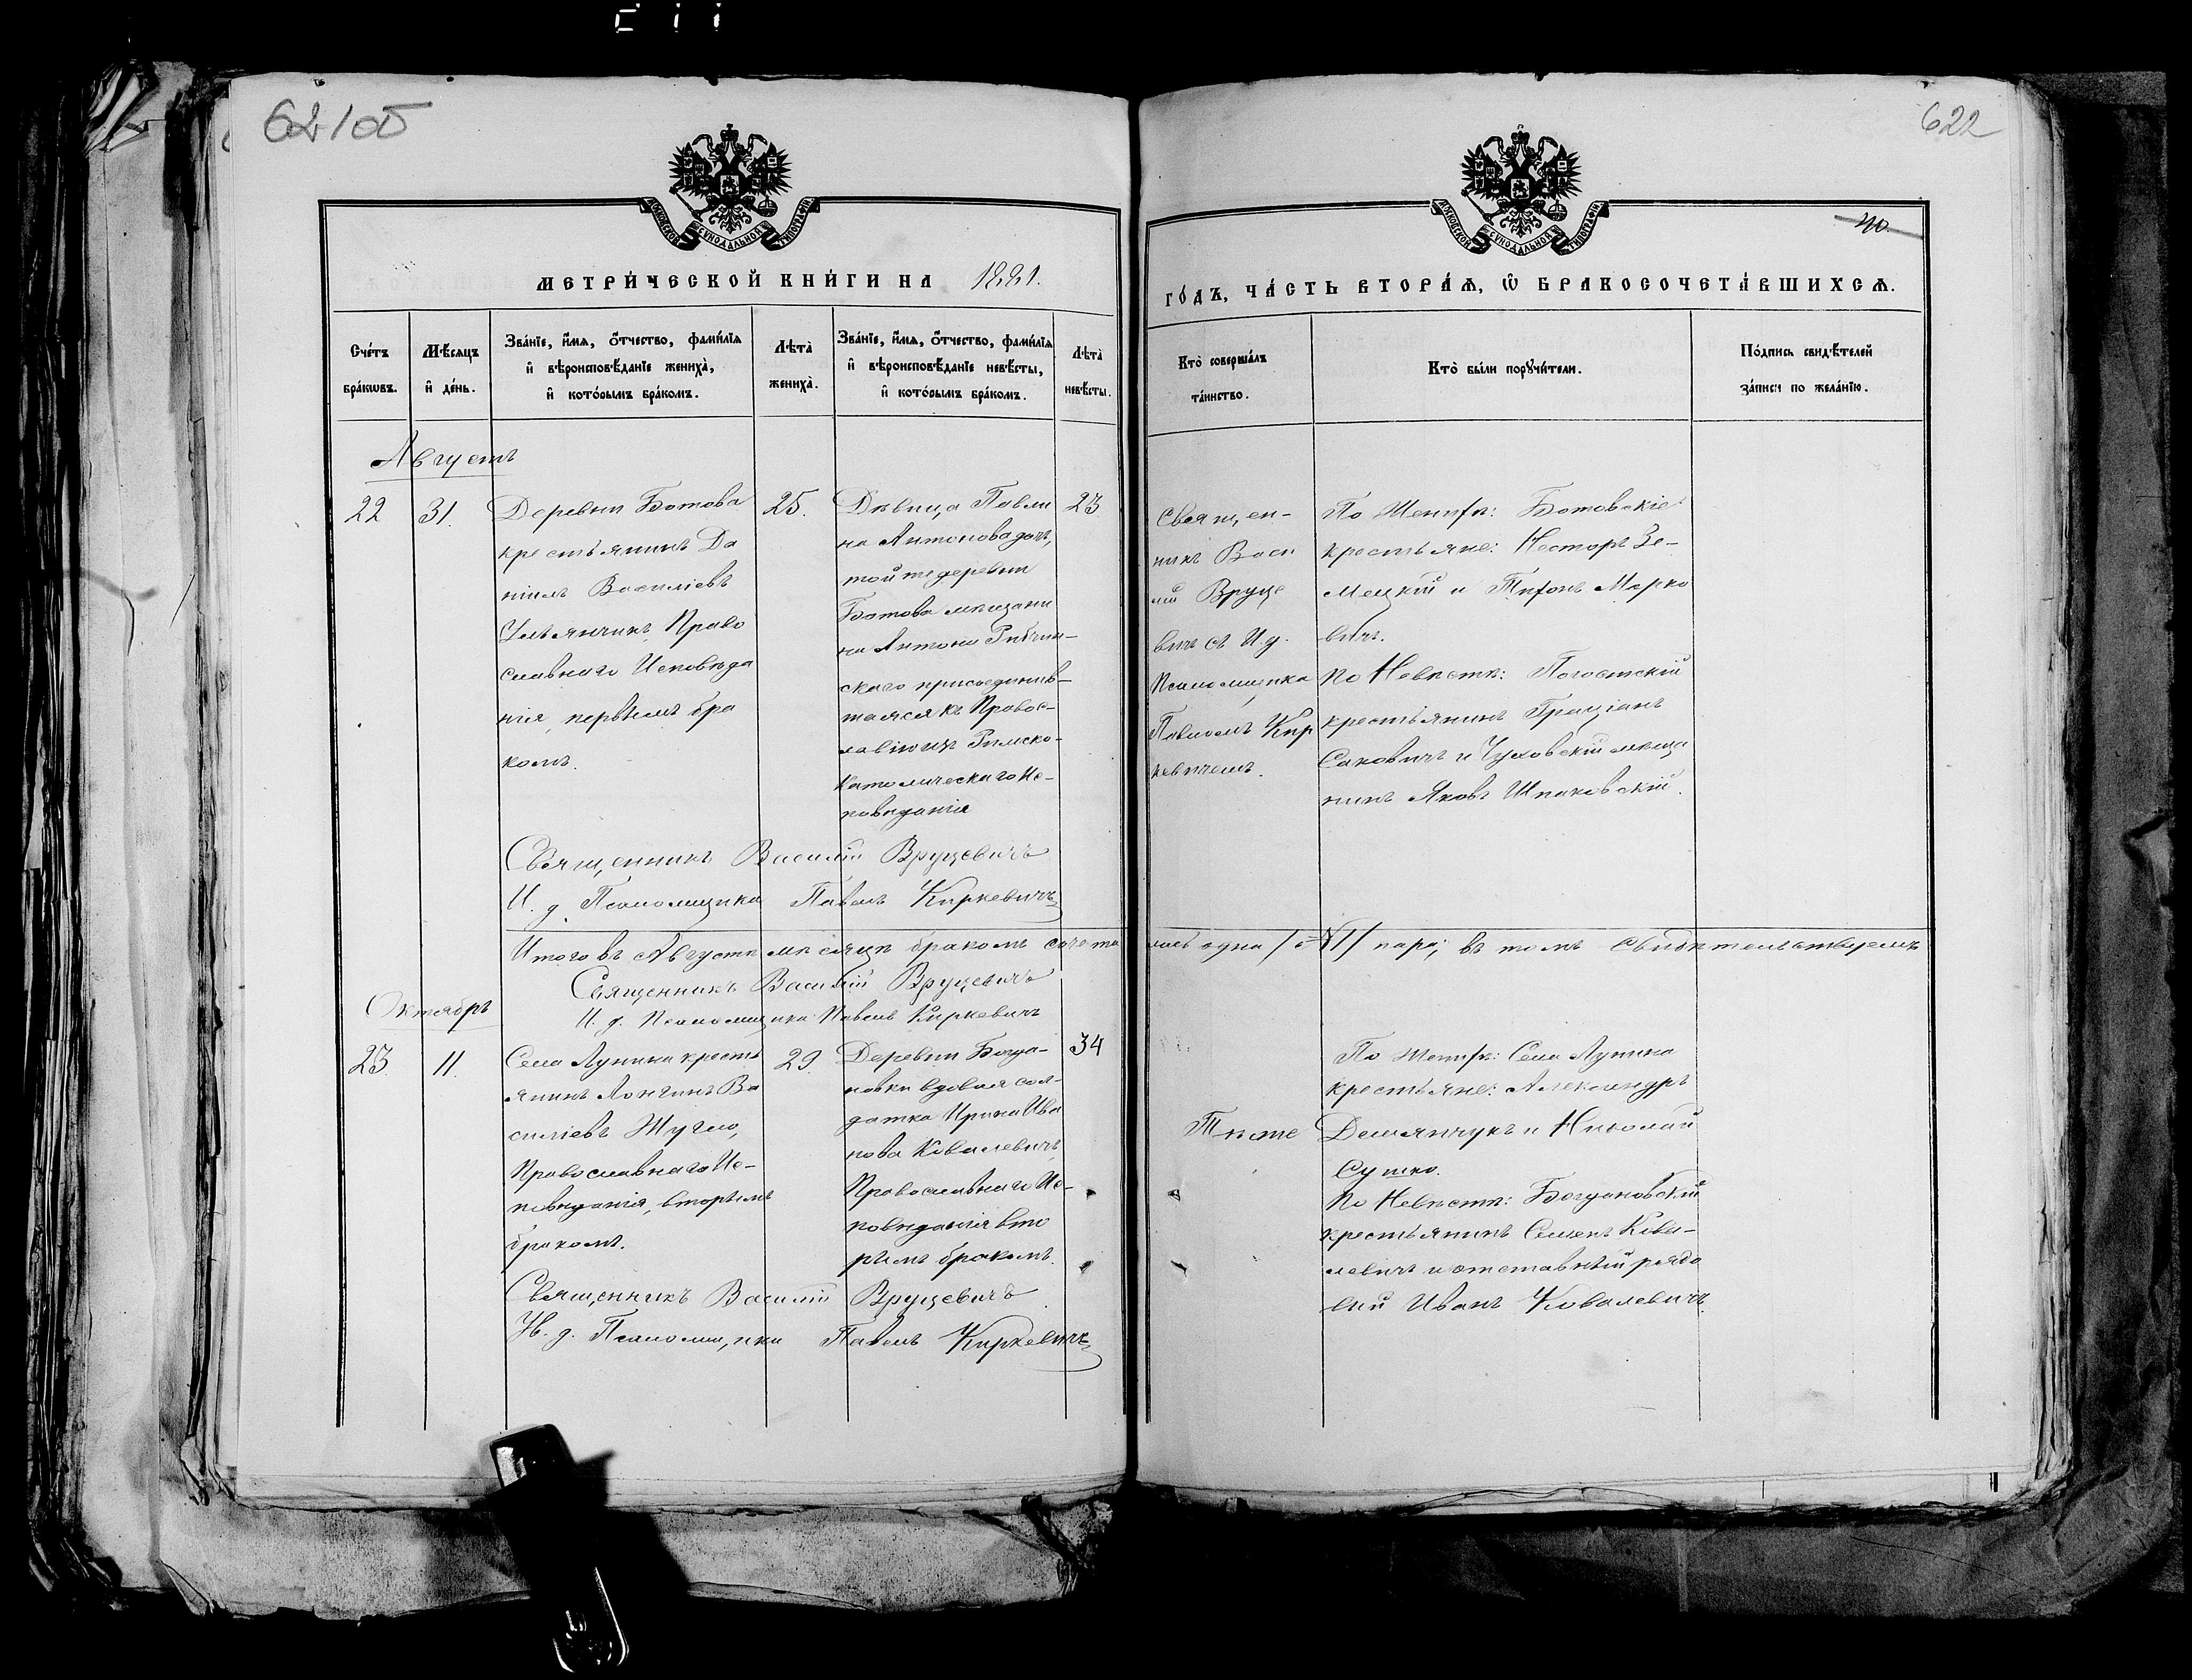 62100
622
40
МОСКОВСКОЙ СѴНОДАЛЬНОЙ ТИПОГРАФІИ
МОСКОВСКОЙ СѴНОДАЛЬНОЙ ТИПОГРАФІИ
МЕТРИ́ЧЕСКОЙ КНИ́ГИ НА 1881.
ГО́ДЪ, ЧА́СТЬ ВТОРА́Ѧ, Ѡ҆ БРАКОСОЧЕТА́ВШИХСѦ.
Сче́тъ
бра́кѡвъ.
Мѣ́сѧцъ
и҆ де́нь.
Зва́нїе, и҆́мѧ, ѻ҆́тчество, фами́лїѧ
и҆ вѣроисповѣ́данїе жениха̀,
и҆ кото́рымъ бра́комъ.
Лѣта̀
жениха̀.
Зва́нїе, и҆́мѧ, ѻ҆́тчество, фами́лїѧ
и҆ вѣроисповѣ́данїе невѣ́сты,
и҆ кото́рымъ бра́комъ.
Лѣта̀
невѣ́сты.
Кто̀ соверша́лъ
та́инство.
Кто̀ бы́ли порꙋчи́тели.
По́дпись свидѣ́телей
за́писи по жела́нїю.
Августъ
22
31.
Деревни Ботова
крестьянинъ Да
ніилъ Василіевъ
Ульянчикъ Право
славнаго Исповѣда
нія, первымъ бра
комъ.
25.
Дѣвица Павли
на Антонова дочь,
той же деревни
Ботова мѣщани
на Антона
скаго присоединив-
шаяся къ Правос-
лавію изъ Римско-
Католическаго Ис-
повѣданія
23
Священ-
никъ Васи
лій Вруце
вичъ съ И. д.
Псаломщика
Павломъ Кир
кевичемъ.
По Женихѣ: Ботовскіе
крестьяне: Несторъ Зе-
мецкій и Марко
вичъ.
По Невѣстѣ: Погостскій
крестьянинъ Граціанъ
Саковичъ и мѣща
нинъ Яковъ Шпаковскій.
Священникъ Василій Вруцевичъ
И. д. Псаломщика Павелъ Киркевичъ
Итого въ Августѣ мѣсяцѣ бракомъ сочета лась одна пара; въ томъ свидѣтельствуемъ
Священникъ Василій Вруцевичъ
И. д. Псаломщика Павелъ Киркевичъ
Октябрь
23.
11.
Села Лунина кресть
янинъ Лонгинъ Ва
силіевъ Жугло,
Православнаго Ис-
повѣданія, вторымъ
бракомъ.
29.
Деревни Богда-
новки вдовая сол-
датка Ирина Ива
нова Ковалевичъ
Православнаго Ис-
повѣданія вто
рымъ бракомъ.
34
Тѣже
По Женихѣ: Села Лунина
крестьяне: Александръ
Демянчукъ и Николай
Сушко.
По Невѣстѣ: Богдановскій
крестьянинъ Семенъ Кова-
левичъ и отставный рядо
вый Иванъ Ковалевичъ.
Священникъ Василій Вруцевичъ
И. д. Псаломщика Павелъ Киркевичъ